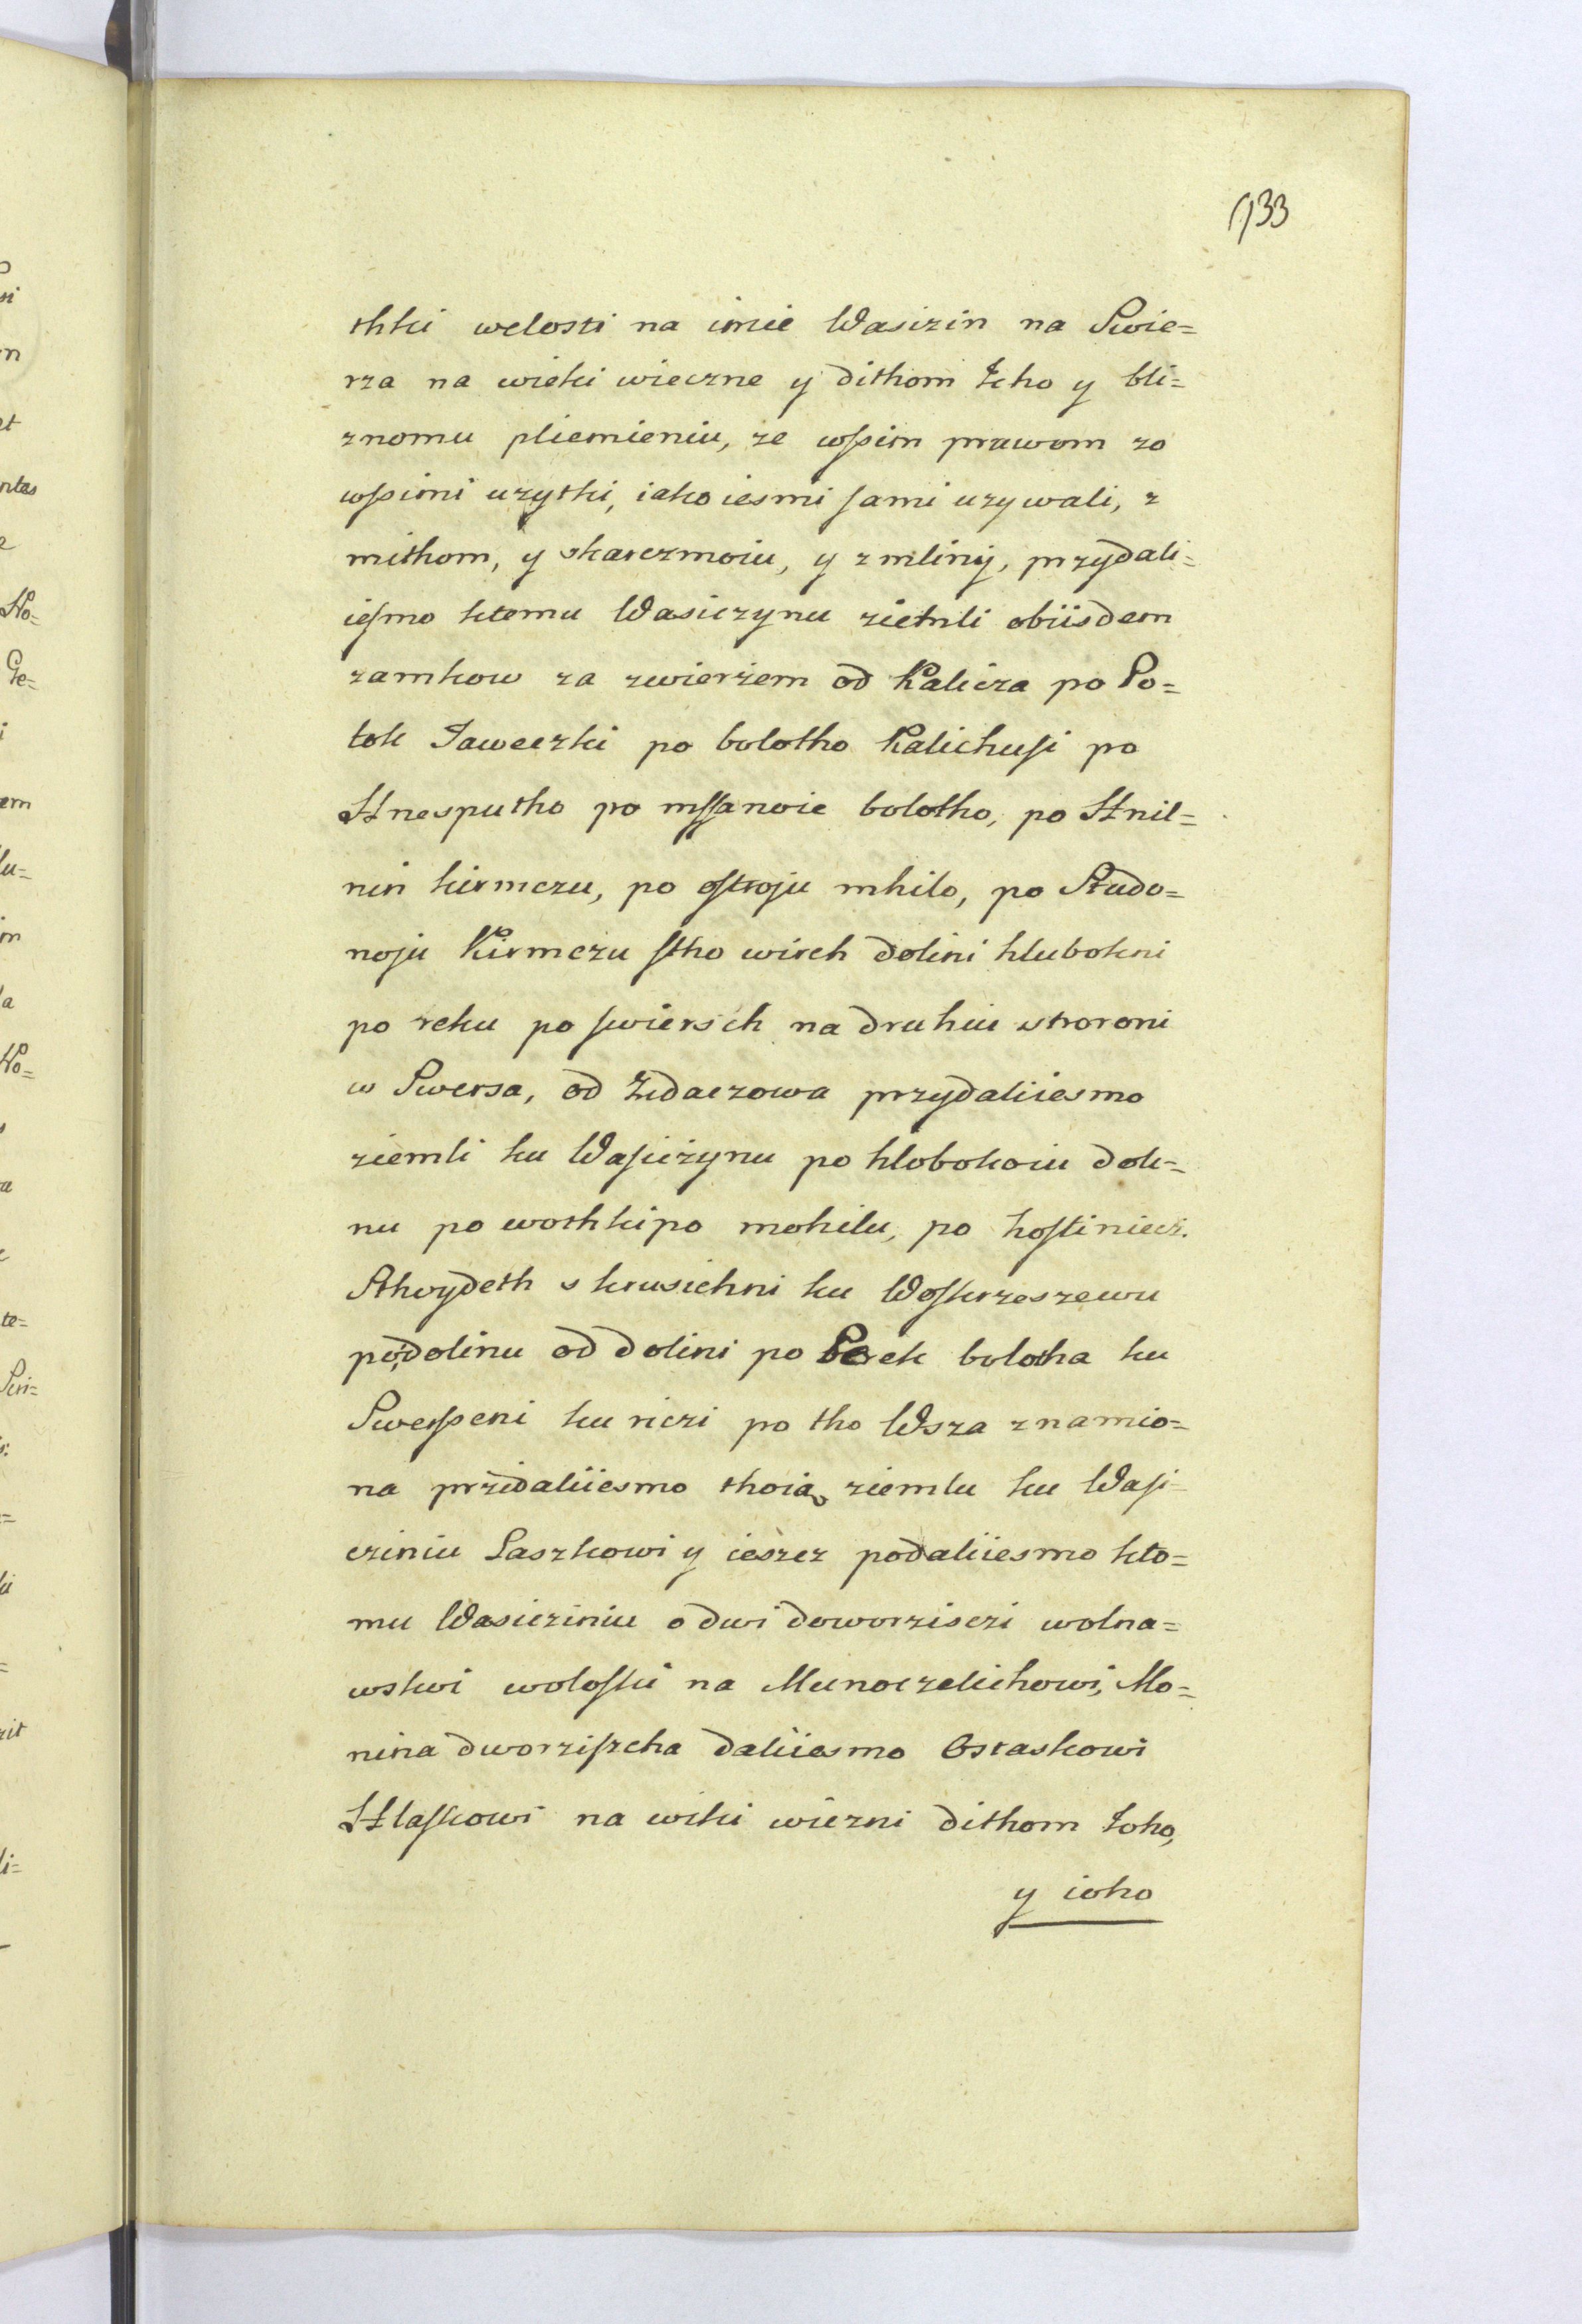 133
thki welosti na imie Wasizin na Swie=
rza na wieki wieczne y dithom Jeho y bli=
znomu pliemieniu, ze wßim prawom zo
wßimi uzytki, iako iesmi sami uzywali, z
mithom, y skarczmoiu, y z mlinij, przydali=
iesmo ktemu Wasiczynu zietnli obiisdem
zamkow za zwierzem od Kalicza po Po=
tok Jaweczki po bolotho Kalichusi po
Hnesputho po mssanoie bolotho, po Hnil=
nin kirmczu, po ostroju mhilo, po Studo=
noju Kirmczu stho wirch dolini hlubokni
po reku po swiersch na druhiu stroroni
w Swersa, od Zidaczowa przydaliiesmo
ziemli ku Wasiczynu po hlobokoiu dok=
nu po wothkipo mohilu, po hostiniecz.
Sthoydeth s krusichni ku Woskrzeszewu
po dolinu od dolini po Berek bolotha ku
Swerßeni ku riczi po tho Wsza znamio=
na przidaliiesmo thoia ziemlu ku Wasi=
cziniu Laszkowi y ieszcz podaliiesmo kto=
mu Wasicziniu o dwi doworzisczi wolna=
wskwi wolosku na Munoczelichowi, Mo=
nina dworzißcha daliiesmo Ostaskowi
Hlaskowi na wiki wiczni dithom Joho,
y ioho